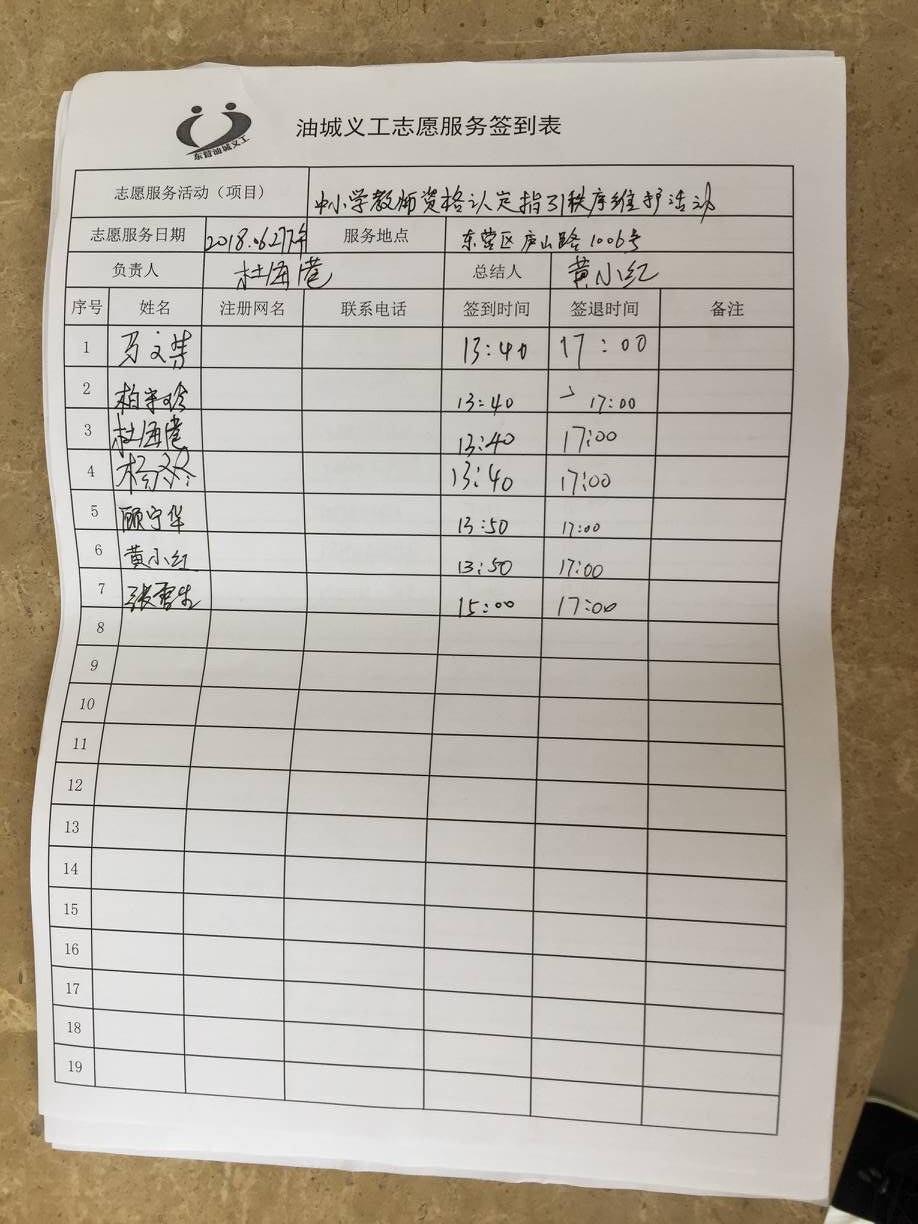 东营油城义工
油城义工志愿服务签到表
志愿服务活动（项目） 中小学教师资格认定指引秩序维护活动
志愿服务日期 2018.06.27下午 服务地点 东营区庐山路1006号
负责人 杜海港 总结人 黄小红
序号 姓名 注册网名 联系电话 签到时间 签退时间 备注
1 13:40 17:00
2 13:40 17:00
3 杜海港 13:40 17:00
4 13:40 17:00
5 顾宁华 13:50 17:00
6 黄小红 13:50 17:00
7 15:00 17:00
8
9
10
11
12
13
14
15
16
17
18
19